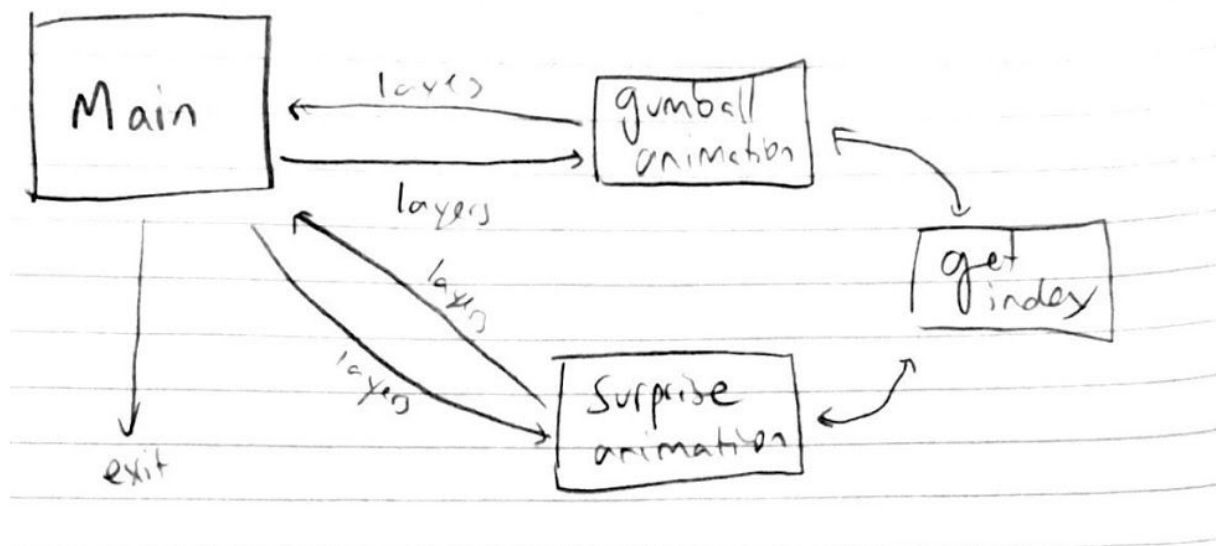 Main
layers
gumball
animation
layers
get
index
layers
layers
surprise
animation
exit